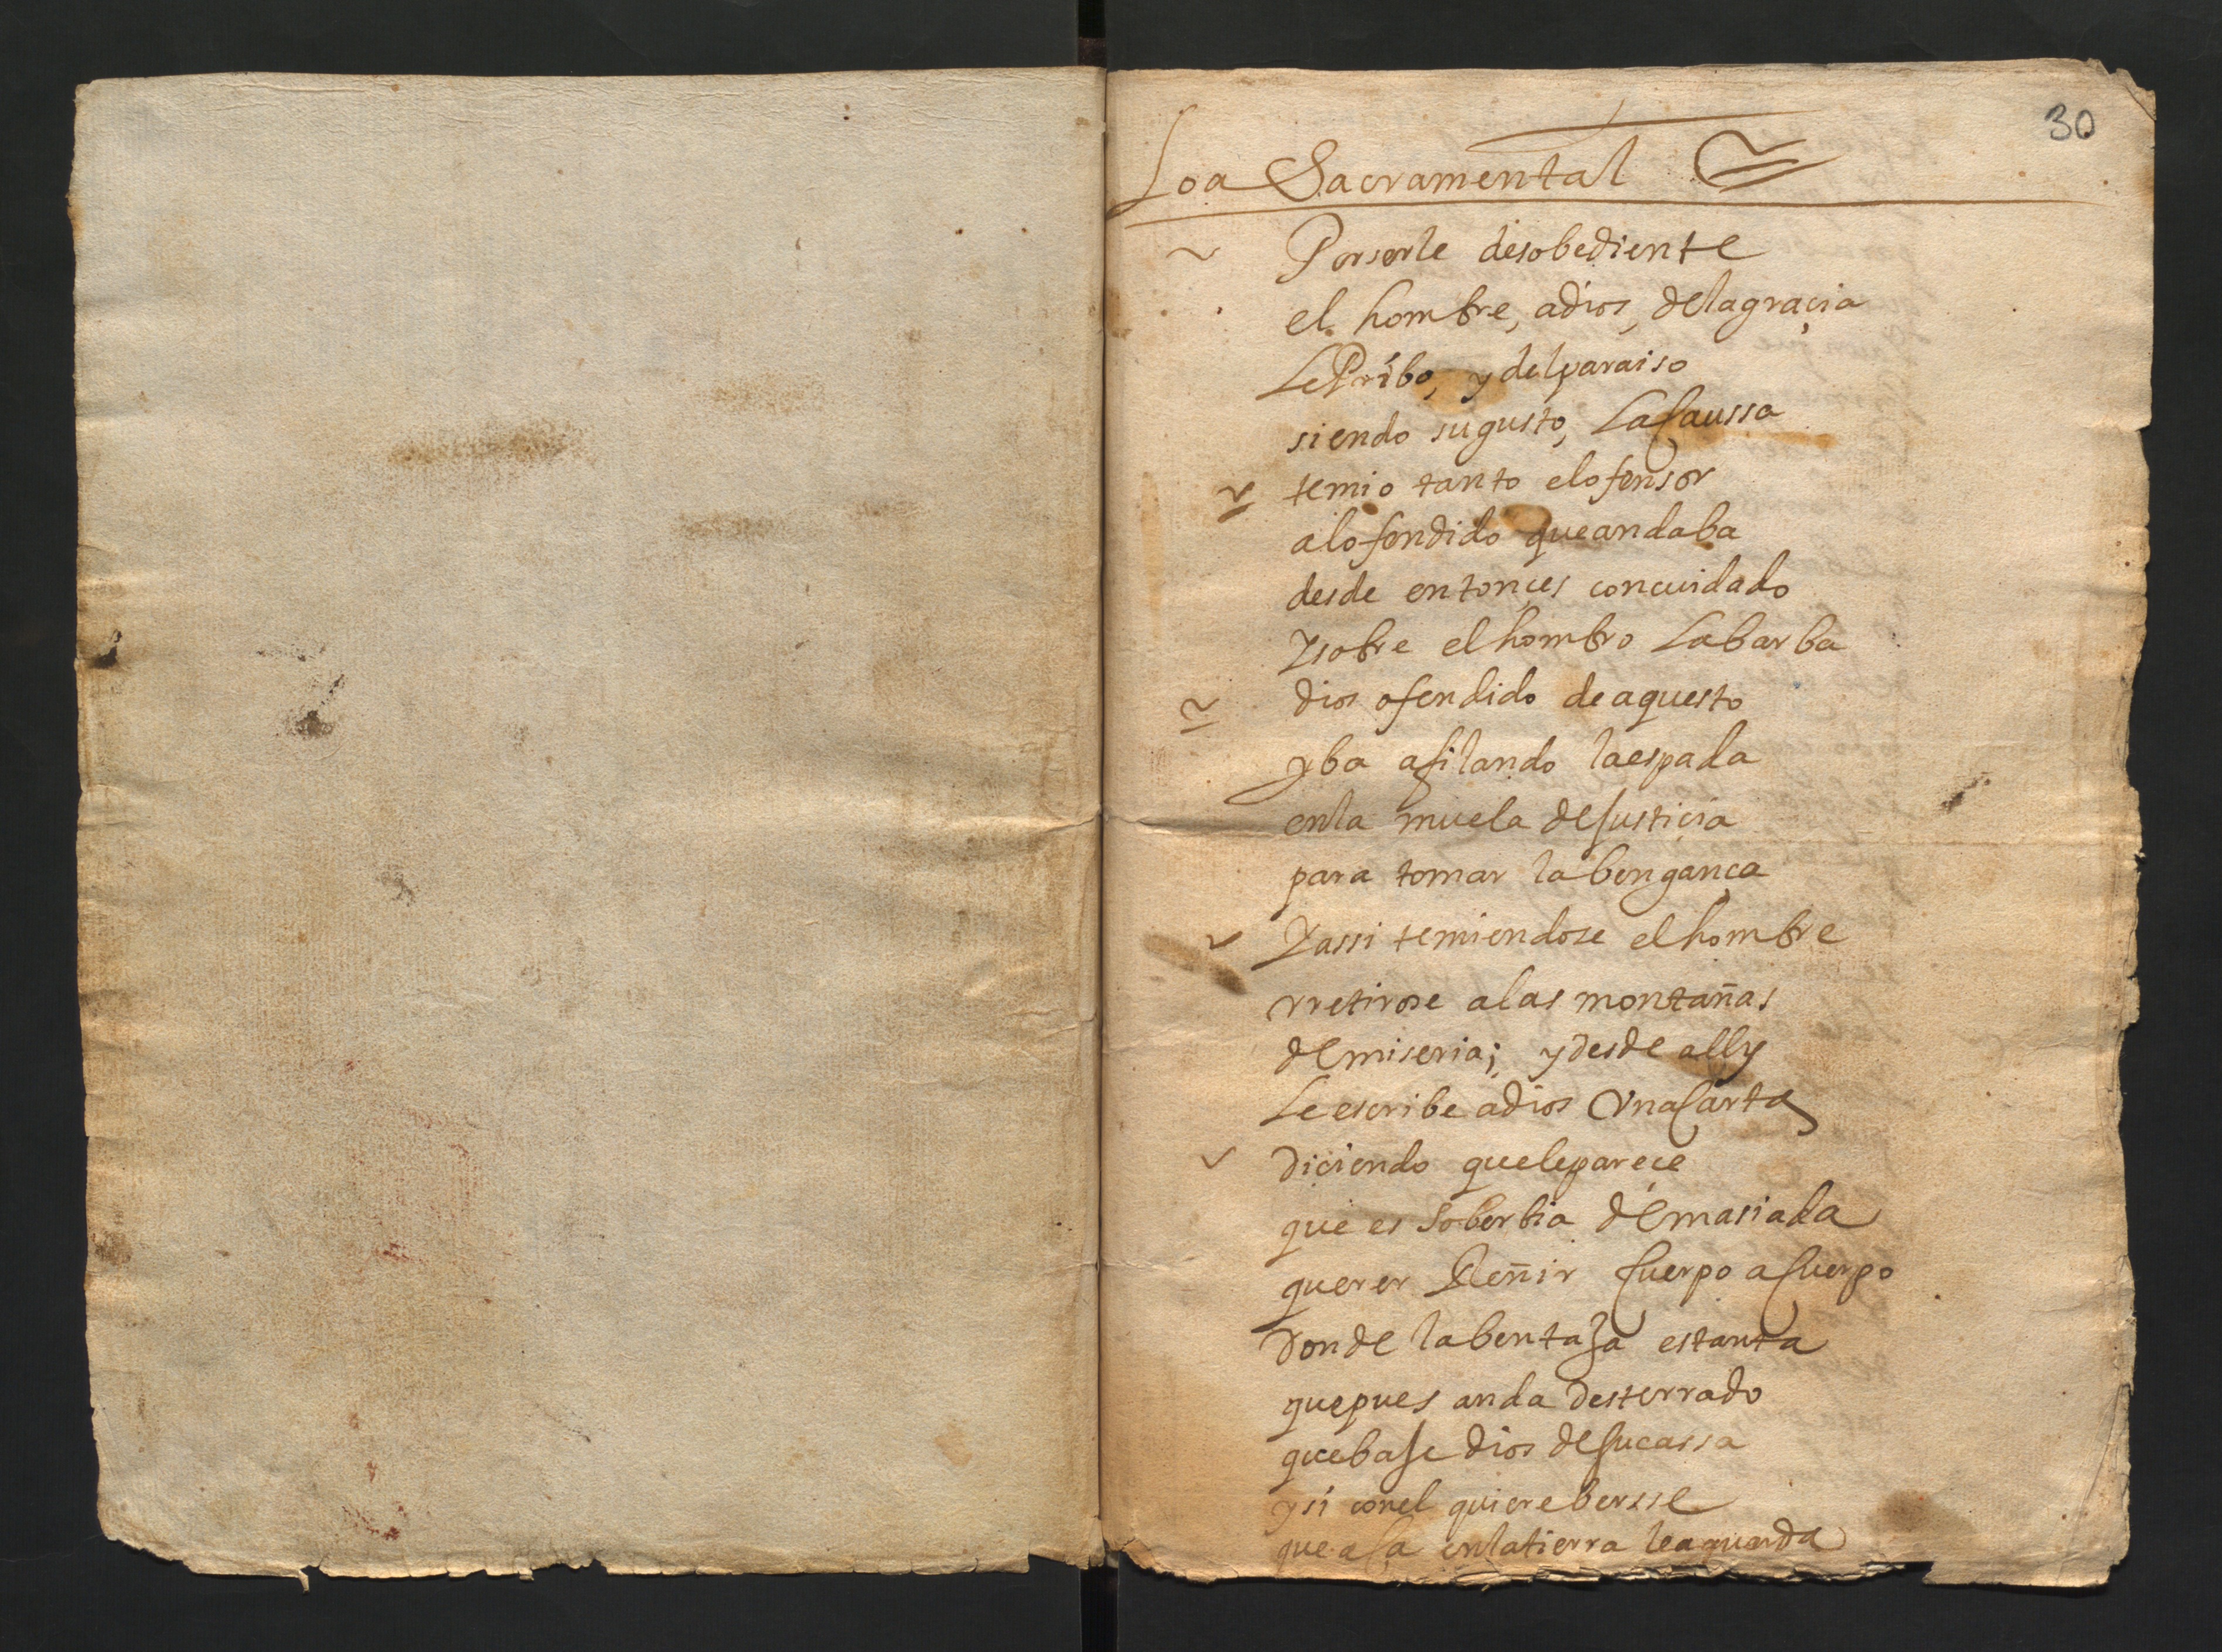 30
Loa Sacramental
Por serle desobediente
el hombre, a dios, de la graçia
Le Pribo, y del paraiso
siendo su gusto, La Caussa
temio tanto el ofensor
al ofendido que andaba
desde entonçes con cuidado
Y sobre el hombro La barba
dios ofendido de aquesto
yba afilando la espada
en la muela de Justiçia
para tomar la bengança
Y assi temiendose el hombre
rretirose a las montañas
de miseria; y desde ally
Le escribe a dios Vna Carta
diçiendo que le pareçe
que es soberbia demasiada
querer Reñir Cuerpo a Cuerpo
donde la bentaJa es tanta
que pues anda desterrado
que baJe dios de su cassa
y si con el quiere bersse
que aCa en la tierra le aguarda